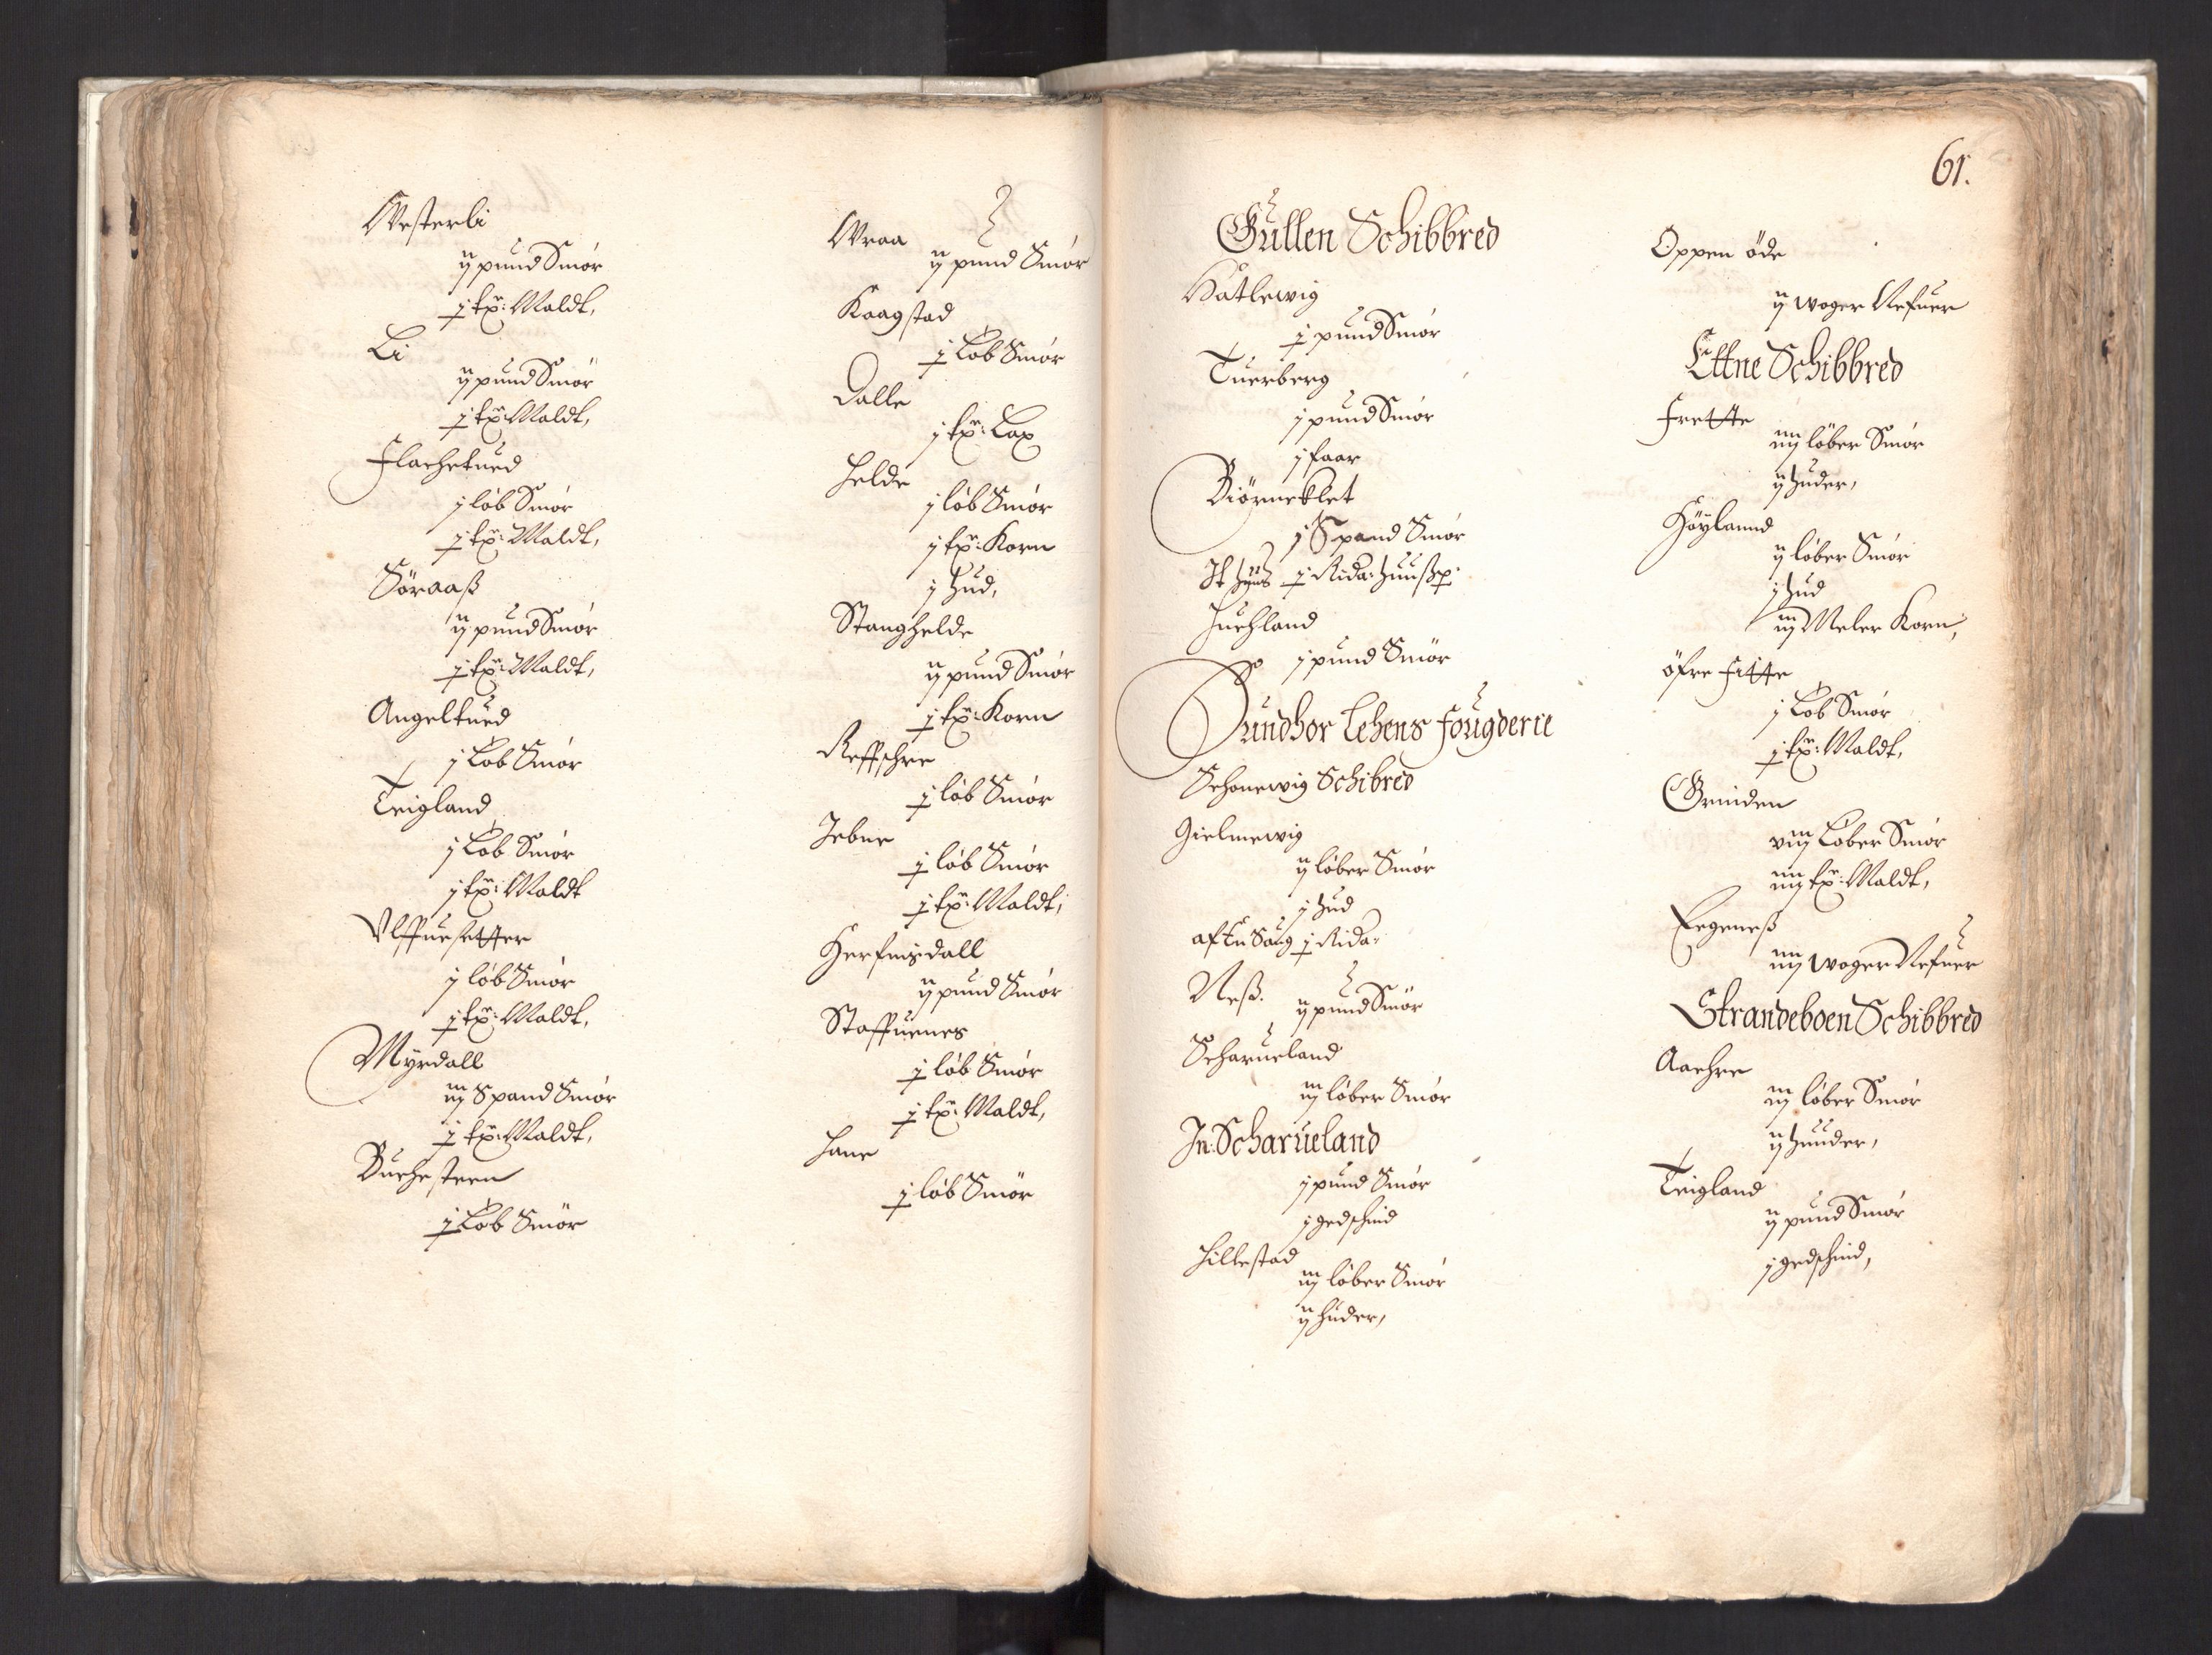 Westerli
ij pund Smör
j tp: Maldt,
Li
ij pund Smör
j tp: Maldt,
Flachetued
j löb Smör
j tp: Maldt,
Söraaß
ij pund Smör
j tp: Maldt,
Angeltued
j Löb Smör
Teigland
j Löb Smör
j tp: Maldt
Vlffuesetter
j löb Smör
j tp: Maldt,
Myrdall
iij Spand Smör
j tp: Maldt,
Buchesteen
j Löb Smör
Wraa
ij pund Smör
Kaagstad
j Löb Smör
Dalle
j tp: Lax
Helde
j löb Smör
j tp: Korn
j hud,
Stanghelde
ij pund Smör
j tp: Korn
Reffschre
j löb Smör
Jebne
j löb Smör
j tp: Maldt,
Herfinsdall
ij pund Smör
Staffuenes
j löb Smör
j tp: Maldt,
Hane
j löb Smör
61.
Gullen Schibbred
Hatlewig
j pund Smör
Tuerberg
j pund Smör
j faar
Biörneklet
j Spand Smör
j Rida:
Juchland
j pund Smör
Sundhor Lehens Fougderie
Schonewig Schibred
Gielmewig
ij löber Smör
j hud
aftensang j Rida:
Neß.
ij pund Smör
Scharueland
iij löber Smör
In: Scharueland
j pund Smör
j gedschind
Hillestad
iij löber Smör
ij huder,
Oppen öde
ij woger Nefuer
Ettne Schibbred
Frette
iiij löber Smör
ij huder,
Höylannd
ij löber Smör
j hud
iij Meler Korn,
öfre Fitte
j Löb Smör
j tp: Maldt,
Grinden
viij Löber Smör
iiij tp: Maldt,
Eegeneß
iiij woger Nefuer
Strandeboen Schibbred
Aachre
iij löber Smör
ij huuder,
Teigland
ij pund Smör
j gedschind,